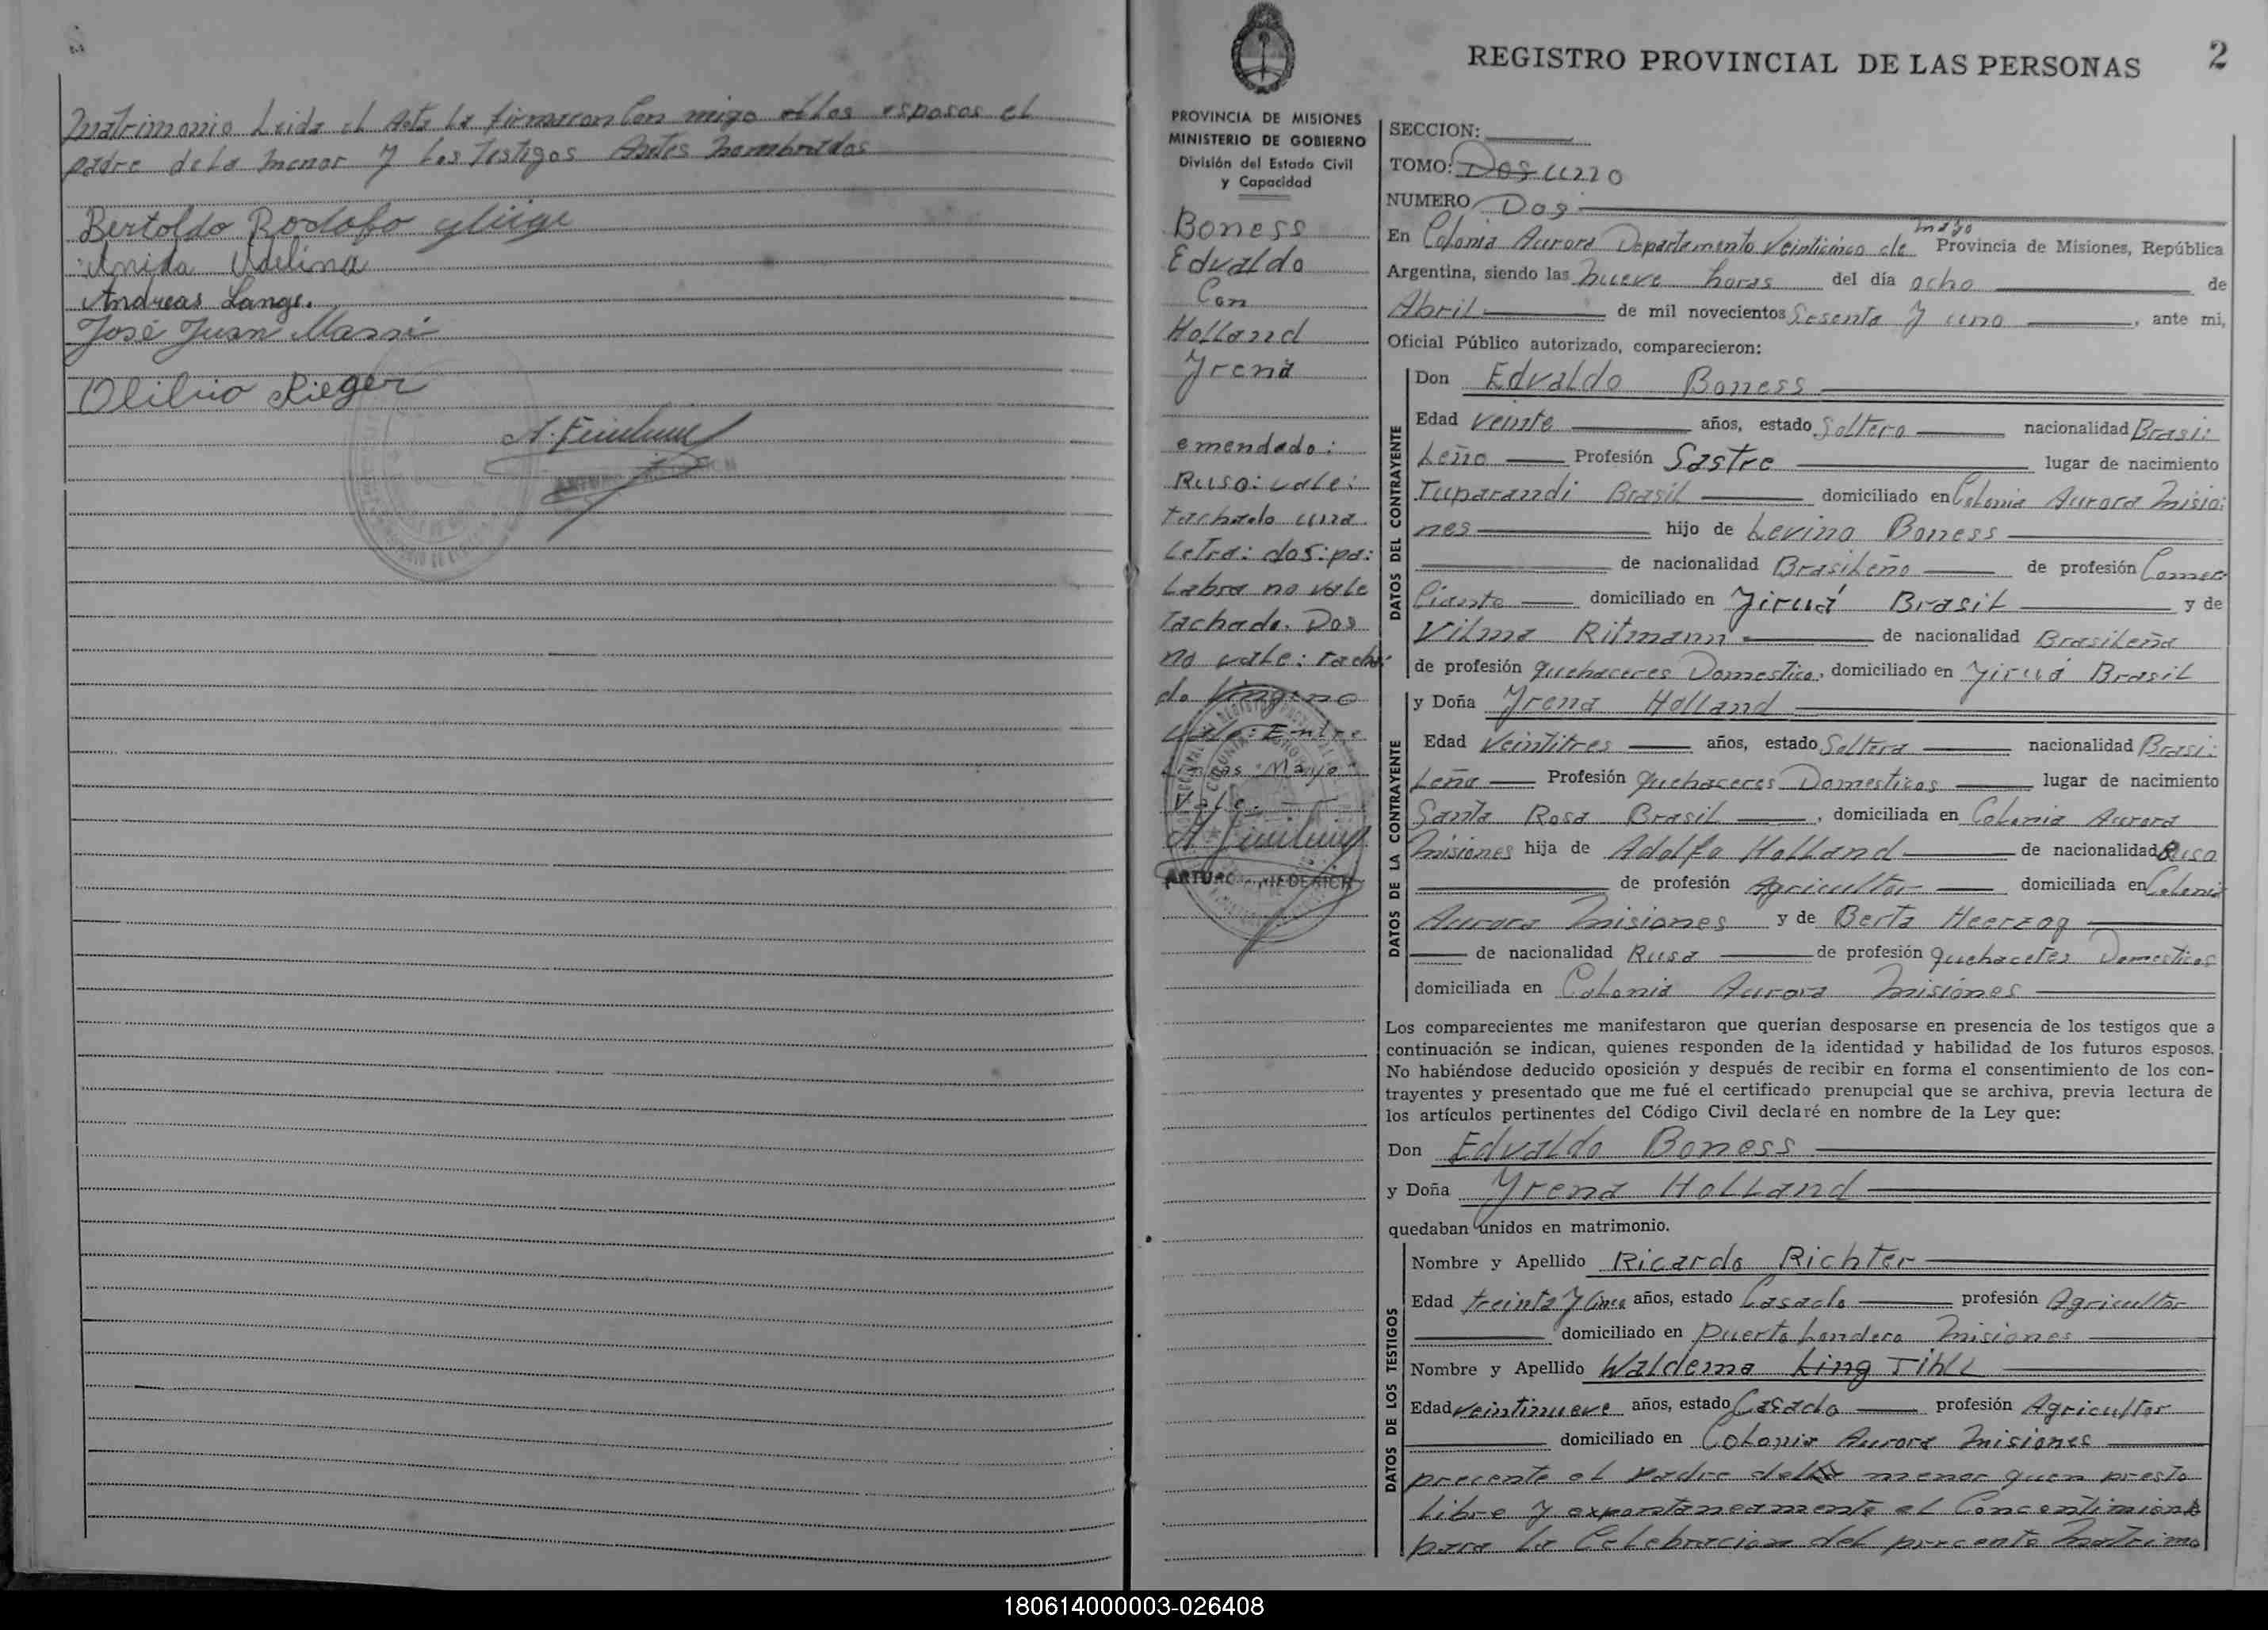 Matrimonio Leida el Acta La firmaron Con migo el los esposos el
padre de La menor y Los Testigos Antes Nombrados
Bertoldo Rodolfo
Anida Adelina
Andreas Lange.
José Juan
Olibio Rieger
2
REGISTRO PROVINCIAL DE LAS PERSONAS
PROVINCIA DE MISIONES
MINISTERIO DE GOBIERNO
División del Estado Civil
y Capacidad
Boness
Edvaldo
Con
Holland
Yrena
emendado:
Ruso: vale:
tachado una
Letra: dos: pa:
Labra no vale
Tachado. Dos
no vale: tacha
do
vale: Entre
Lineas "Mayo"
Vale.
ARTURO
SECCION:
TOMO: Dos uno
NUMERO Dos
En Colonia Aurora Departamento Veinticinco de Mayo Provincia de Misiones, República
Argentina, siendo las nueve horas del día ocho de
Abril de mil novecientos Sesenta y uno, ante mi,
Oficial Público autorizado, comparecieron:
DATOS DEL CONTRAYENTE
Don Edvaldo Boness
Edad veinte años, estado Soltero nacionalidad Brasi:
Leño Profesión Sastre lugar de nacimiento
Tuparandi Brasil domiciliado en Colonia Aurora Misio:
nes hijo de Levino Boness
de nacionalidad Brasileño de profesión Comer
Ciante domiciliado en Jiruá Brasil y de
Vilma Ritmann de nacionalidad Brasileña
de profesión quehaceres Domestico, domiciliado en Jiruá Brasil
DATOS DE LA CONTRAYENTE
y Doña Yrena Holland
Edad Veintitres años, estado Soltera nacionalidad Brasi:
Leña Profesión quehaceres Domesticos lugar de nacimiento
Santa Rosa Brasil, domiciliada en Colonia Aurora
Misiones hija de Adolfo Holland de nacionalidad Ruso
de profesión Agricultor domiciliada en Colonia
Aurora Misiones y de Berta Heerzog
de nacionalidad Rusa de profesión quehaceres Domesticos
domiciliada en Colonia Aurora Misiones
Los comparecientes me manifestaron que querían desposarse en presencia de los testigos que a
continuación se indican, quienes responden de la identidad y habilidad de los futuros esposos.
No habiéndose deducido oposición y después de recibir en forma el consentimiento de los con-
trayentes y presentado que me fué el certificado prenupcial que se archiva, previa lectura de
los artículos pertinentes del Código Civil declaré en nombre de la Ley que:
Don Edvaldo Boness
y Doña Yrena Holland
quedaban unidos en matrimonio.
DATOS DE LOS TESTIGOS
Nombre y Apellido Ricardo Richter
Edad treinta y Cinco años, estado Casado profesión Agricultor
domiciliado en Puerto Londero Misiones
Nombre y Apellido Waldema King Tihll
Edad veintinueve años, estado Casado profesión Agricultor
domiciliado en Colonia Aurora Misiones
precente el Padre de la menor quen presto
Libre y expontaneamente el Concentimiento
para La Celebracion del precente Matrimo
180614000003-026408